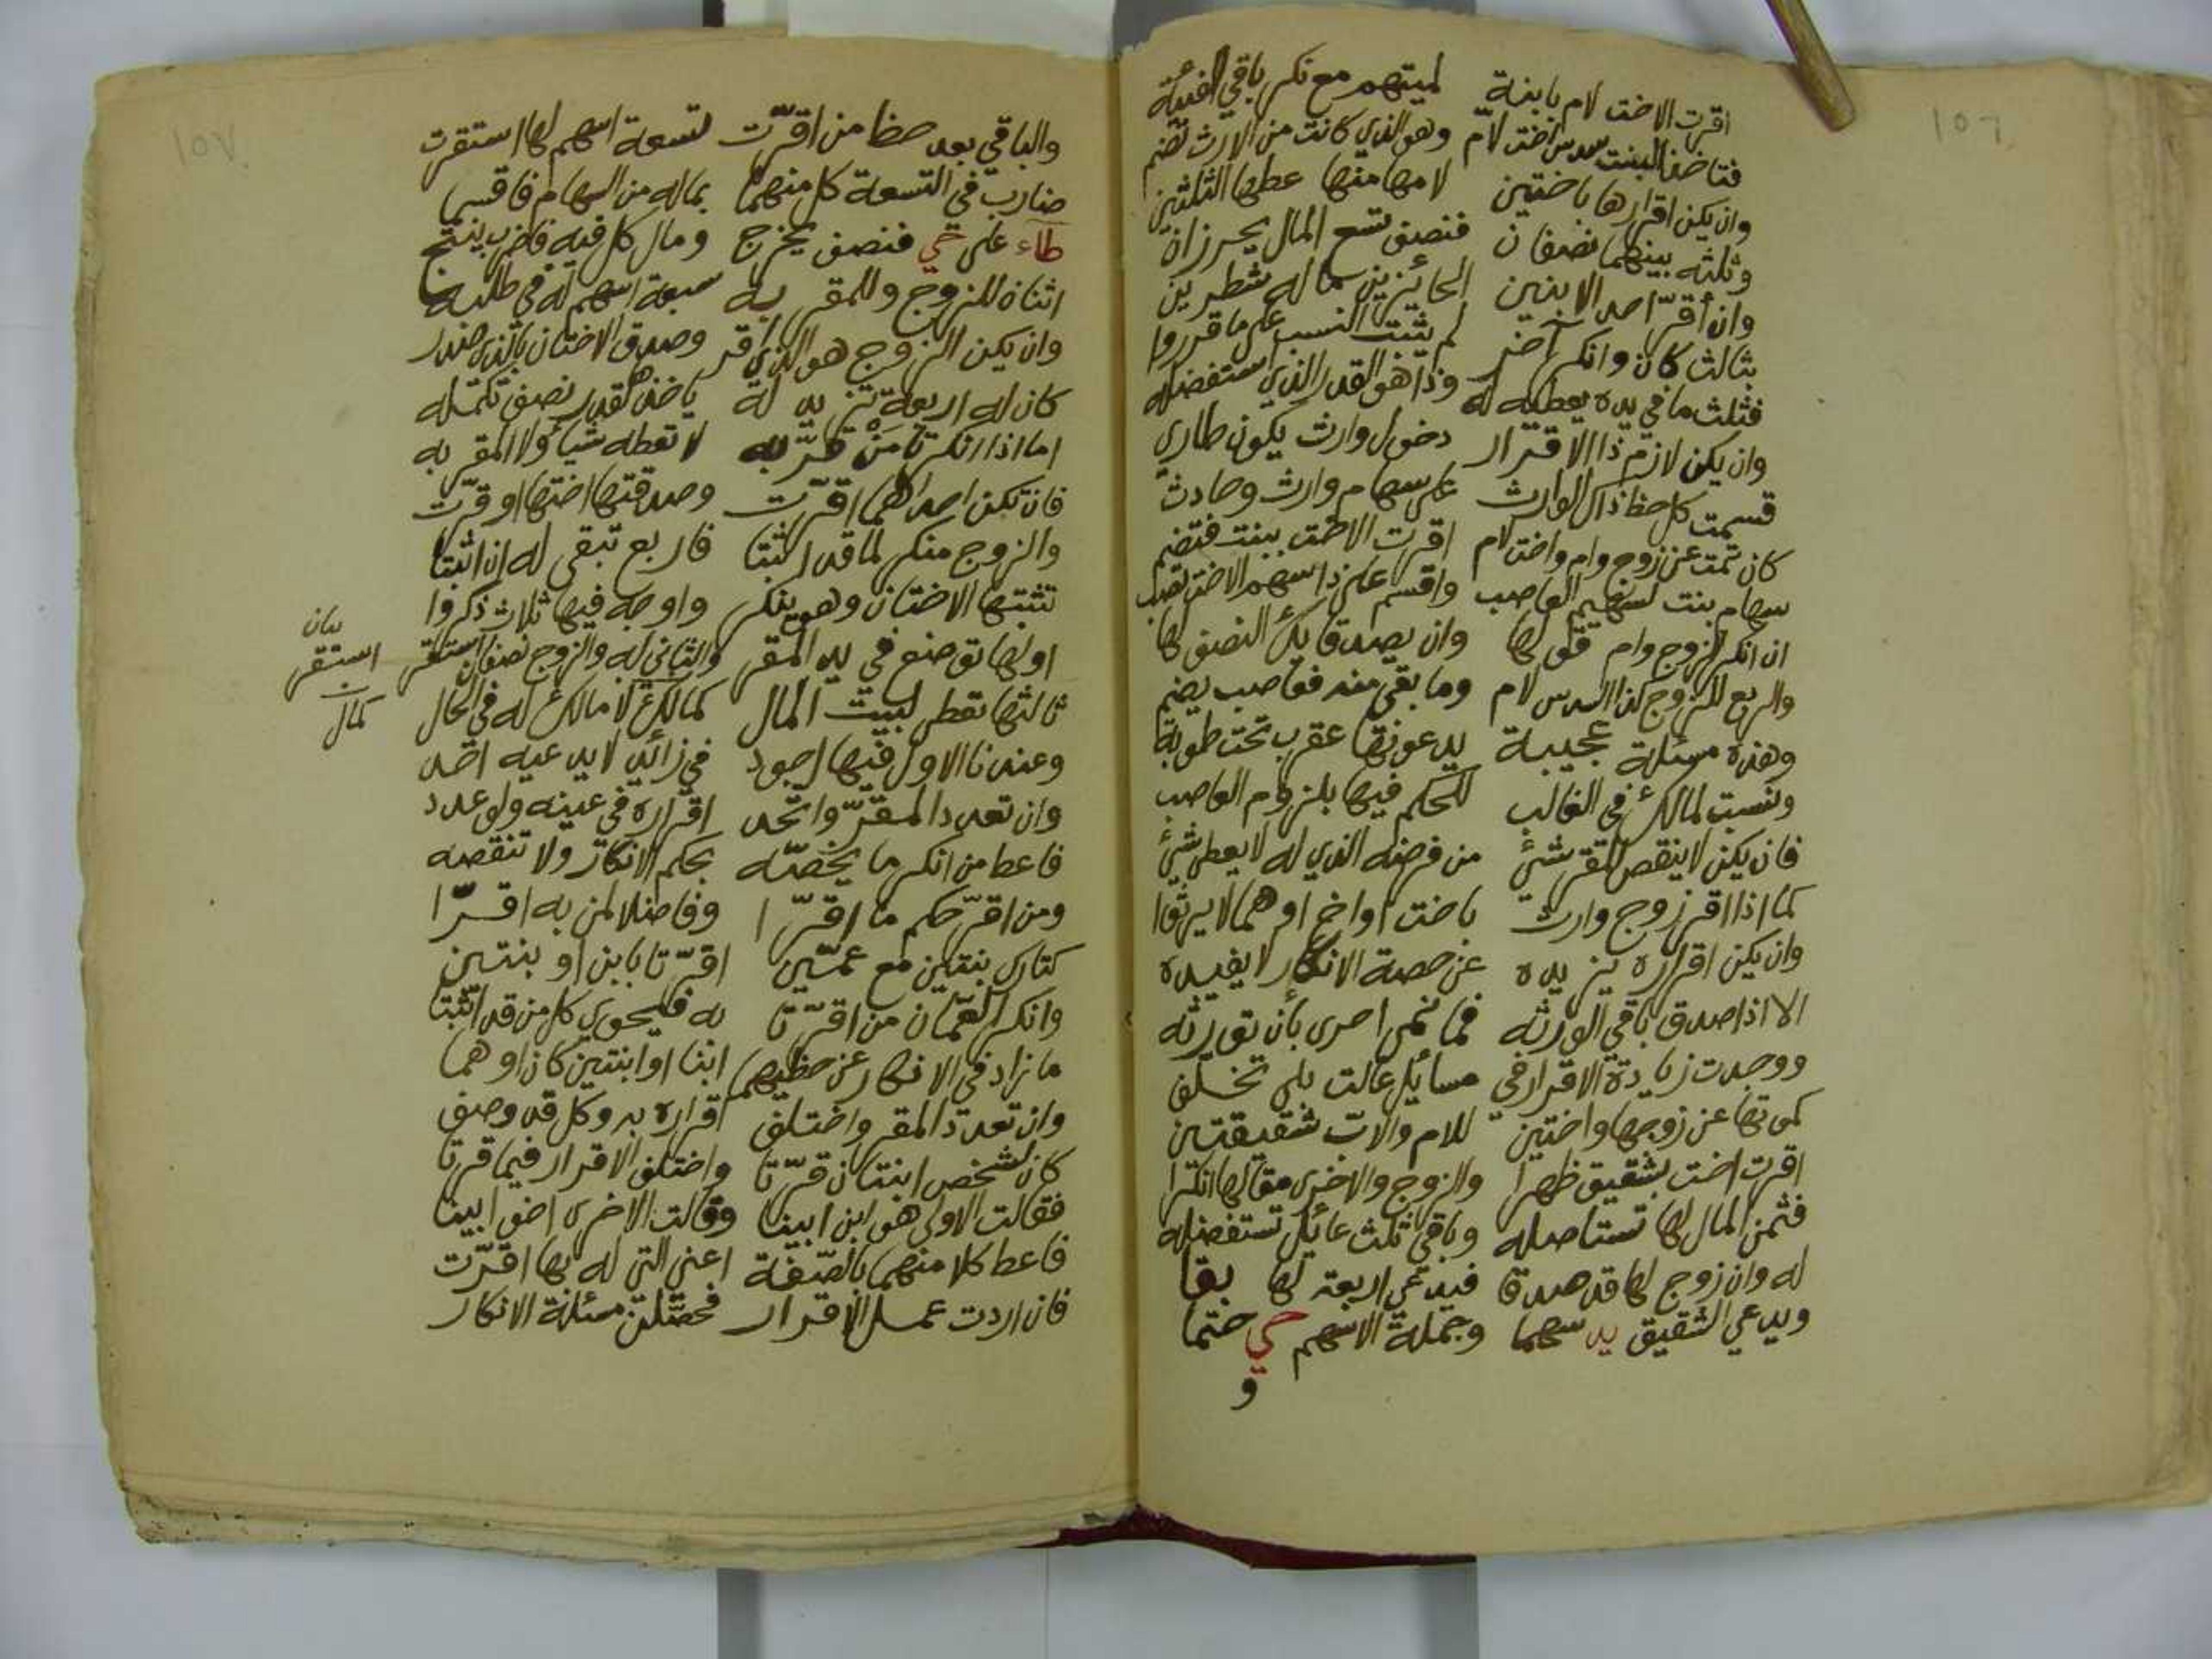 ١٥٦
اقرت الاخت لام بابنة لميتهم مع نكر باقي الفئة
فتاخذ البنت سدس اخت لام وهو الذي كانت من الارث تضم
وان يكن اقرارها باختين لامها منها عطها الثلثين
وثلثه بينهما نصفان فنصف تسع المال يحرزان
وان اقر احد الابنين الحائزين مما له شطرين
بثالث كان وانكر آخر لم يثبت النسب على ما قرروا
فثلث ما في يده يعطيه له وذا هو القدر الذي استفضله
وان يكن لازم ذا الاقرار دخول وارث يكون طاري
قسمت كل حظ ذاك الوارث على سهام وارث وحادث
كان تمت عن زوج وام واخت لام اقرت الاخت ببنت فتضم
سهام بنت لسهيم العاصب واقسم على ذا سهم الاخت تصب
ان انكر الزوج وام قولها وان يصدقا بك النصف لها
والربع للزوج كذا السدس لام وما بقي منه فعاصب يضم
وهذه مسئلة عجيبة يدعونها عقرب تحت طوبة
ونسبت لمالك في الغالب للحكم فيها بلزوم العاصب
فان يكن لا ينقص المقر شئ من فرضه الذي له لا يعطي شئ
كما اذا اقر زوج وارث باخت او اخ او هما لا يرثوا
وان يكن اقراره يزيده عن حصة الانكار لا يفيده
الا اذا صدق باقي الورثه فما نمى احرى بأن تورثه
ووجدت زيادة الاقرار في مسائل عالت بلى تخلف
كموتها عن زوجها واختين للام والاب شقيقتين
اقرت اخت بشقيق ظهرا والزوج والاخرى مقالها انكرا
فثمن المال لها تستاصله وباقي ثلث عائل تستفضله
له وان زوج لها قد صدقا فيدعي اربعة لها بقا
ويدعي الشقيق يد سهما وجملة الاسهم حي حتما
و
١٥٧
والباقي بعد حظ من اقرت تسعة اسهم لها استقرت
ضارب في التسعة كل منهما بماله من السهام فاقسما
طاء على حي فنصف يخرج ومال كل فيه فاضرب ينتج
اثنان للزوج وللمقر به سبعة اسهم له في طلبه
وان يكن الزوج هو الذي اقر وصدق الاختان بالذي صدر
كان له اربعة تزيد له ياخذها لقدر نصف تكمله
اما اذا انكرتا من قر به لا تعطه شيأ ولا المقر به
فان تكن احداهما اقرت وصدقتها اختها او قرت
والزوج منكر لما قد اثبتا فاربع تبقى له ان اثبتا
تثبتها الاختان وهو ينكر واوجه فيها ثلاث ذكروا
اولها توضع في يد المقر والثاني له والزوج نصفان استقر
ثالثها تعطى لبيت المال كمالك لا مالك له في الحال
وعندنا الاول فيها اجود في زائد لا يدعيه احد
وان تعدد المقر واتحد اقراره في عينه ولو عدد
فاعط من انكر ما يخصه بحكم الانكار ولا تنقصه
ومن اقر حكم ما اقرا وفاضلا لمن به اقرا
كتارك بنتين مع عمين اقرتا بابن او بنتين
وانكر العمان من اقرتا به فيحوي كل من قد اثبتا
ما زاد في الانكار عن حظيهما ابنا او ابنتين كان او هما
وان تعدد المقر واختلف اقراره به وكل قد وصف
كان لشخص ابنتان قرتا واختلف الاقرار فيما قرتا
فقالت الاولى هو ابن ابينا وقالت الاخرى اخو ابينا
فاعط كلا منهما بالصفة اعني التي له بها اقرت
فان اردت عمل الاقرار فحصلن مسئلة الانكار
بيان
استقر
كمال